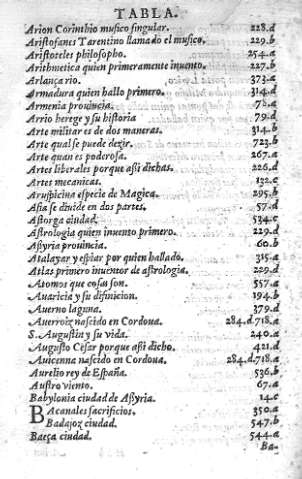 TABLA.
Arion Corinthio musico singular. 228.d
Aristofanes Tarentino llamado el musico. 229.b
Aristoteles philosopho. 254.a
Arithmetica quien primeramente inuento. 227.b
Arlança rio. 373.a
Armadura quien hallo primero. 314.d
Armenia prouincia. 78.a
Arrio herege y su historia 79.d
Arte militar es de dos maneras. 314.b
Arte qual se puede dezir. 723.b
Arte quan es poderosa. 267.a
Artes liberales porque assi dichas. 226.d
Artes mecanicas. 132.c
Aruspicina especie de Magica. 295.b
Asia se diuide en dos partes. 57.d
Astorga ciudad. 534.c
Astrologia quien inuento primero. 229.d
Assyria prouincia. 60.b
Atalayar y espiar por quien hallado. 315.a
Atlas primero inuentor de astrologia. 229.d
Atomos que cosas son. 557.a
Auaricia y su difinicion. 194.b
Auerno laguna. 379.d
Auerroiz nascido en Cordoua. 284.d.718.a
S. Augustin y su vida. 240.a
Augusto Cesar porque assi dicho. 421.d
Auicenna nascido en Cordoua. 284.d.718.a
Aurelio rey de España. 536.b
Austro viento. 67.a
Babylonia ciudad de Assyria. 14.c
Bacanales sacrificios. 350.a
Badajoz ciudad. 547.b
Baeça ciudad. 544.a
Ba-